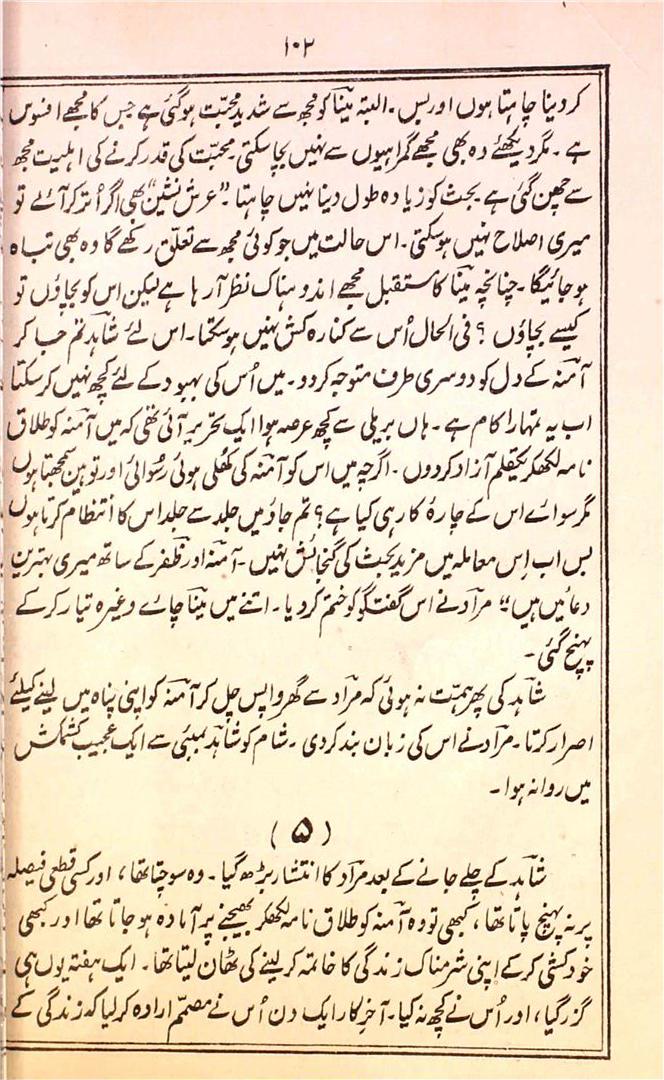 ۱۰۲
کردینا چاہتا ہوں اور بس۔ البتہ میناؔ کو مجھ سے شدید محبت ہوگئی ہے جس کا مجھے افسوس
ہے۔ مگر دیکھئے وہ بھی مجھے گمراہیوں سے نہیں بچا سکتی۔ محبّت کی قدر کرنے کی اہلیت مجھ
سے چھن گئی ہے۔ بحث کو زیادہ طول دینا نہیں چاہتا۔ "عرش نشین" بھی اگر اُتر کر آئے تو
میری اصلاح نہیں ہوسکتی۔ اس حالت میں جو کوئی مجھ سے تعلّق رکھے گا وہ بھی تباہ
ہوجائیگا۔ چنانچہ میناؔ کا مستقبل مجھے اندوہناک نظر آرہا ہے لیکن اس کو بچاؤں تو
کیسے بچاؤں ؟ فی الحال اُس سے کنارہ کش نہیں ہوسکتا۔ اس لئے شاہدؔ تم جا کر
آمنہؔ کے دل کو دوسری طرف متوجہ کردو۔ میں اُس کی بہبود کے لئے کچھ نہیں کرسکتا
اب یہ تمہارا کام ہے۔ ہاں بریلی سے کچھ عرصہ ہوا ایک تحریر آئی تھی کہ میں آمنہؔ کو طلاق
نامہ لکھکر یکقلم آزاد کردوں۔ اگرچہ میں اس کو آمنہؔ کی کھُلی ہوئی رُسوائی اور توہین سمجھتا ہوں
مگر سوائے اس کے چارۂ کار ہی کیا ہے؟ تم جاؤ میں جلد سے جلد اس کا انتظام کرتا ہوں
بس اب اِس معاملہ میں مزید بحث کی گنجائش نہیں۔ آمنہؔ اور ظفرؔ کے ساتھ میری بہترین
دعائیں ہیں" مرادؔ نے اس گفتگو کو ختم کردیا۔ اتنے میں میناؔ چائے وغیرہ تیار کرکے
پہنچ گئی۔
شاہدؔ کی پھر ہمّت نہ ہوئی کہ مرادؔ سے گھر واپس چل کر آمنہؔ کو اپنی پناہ میں لینے کیلئے
اصرار کرتا۔ مرادؔ نے اس کی زبان بند کردی۔ شام کو شاہدؔ بمبئی سے ایک عجیب کشمکش
میں روانہ ہوا۔
( ۵ )
شاہدؔ کے چلے جانے کے بعد مرادؔ کا انتشار بڑھ گیا۔ وہ سوچتا تھا، اور کسی قطعی فیصلہ
پر نہ پہنچ پاتا تھا، کبھی تو وہ آمنہؔ کو طلاق نامہ لکھکر بھیجنے پر آمادہ ہوجاتا تھا اور کبھی
خودکشی کرکے اپنی شرمناک زندگی کا خاتمہ کرلینے کی ٹھان لیتا تھا۔ ایک ہفتہ یوں ہی
گزر گیا، اور اُس نے کچھ نہ کیا۔ آخر کار ایک دن اُس نے مصمّم ارادہ کرلیا کہ زندگی کے